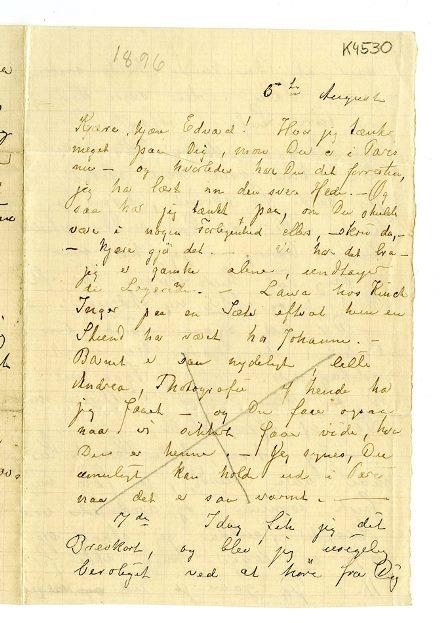 1896
K4530
5te August
Kjære, kjære Edvard! Hvor jeg tænker
meget paa Dig, mon Du er i Paris
nu – og hvorledes har Du det forresten,
jeg har læst om den svære Hede. – Og
saa har jeg tænkt paa, om Du skulde
være i nogen Forlegenhed ellers, – skriv da, –
– kjære gjö det. – – Vi har det bra –
jeg er ganske alene, undtagen
de Logerende. – Laura hos Kinck
Inger paa en Sæter efterat hun en
Stund har været hos Johanne. –
Barnet er saa nydeligt, lille
Andrea, Photografie af hende har
jeg faaet – og Du faar ogsaa
naar vi sikkert faar vide, hvor
Du er henne. – Jeg synes, Du
umuligt kan holde ud i Paris
naar det er saa varmt. –
7de Idag fik jeg dit
Brevkort, og blev jeg usigelig
beroliget ved at höre fra Dig